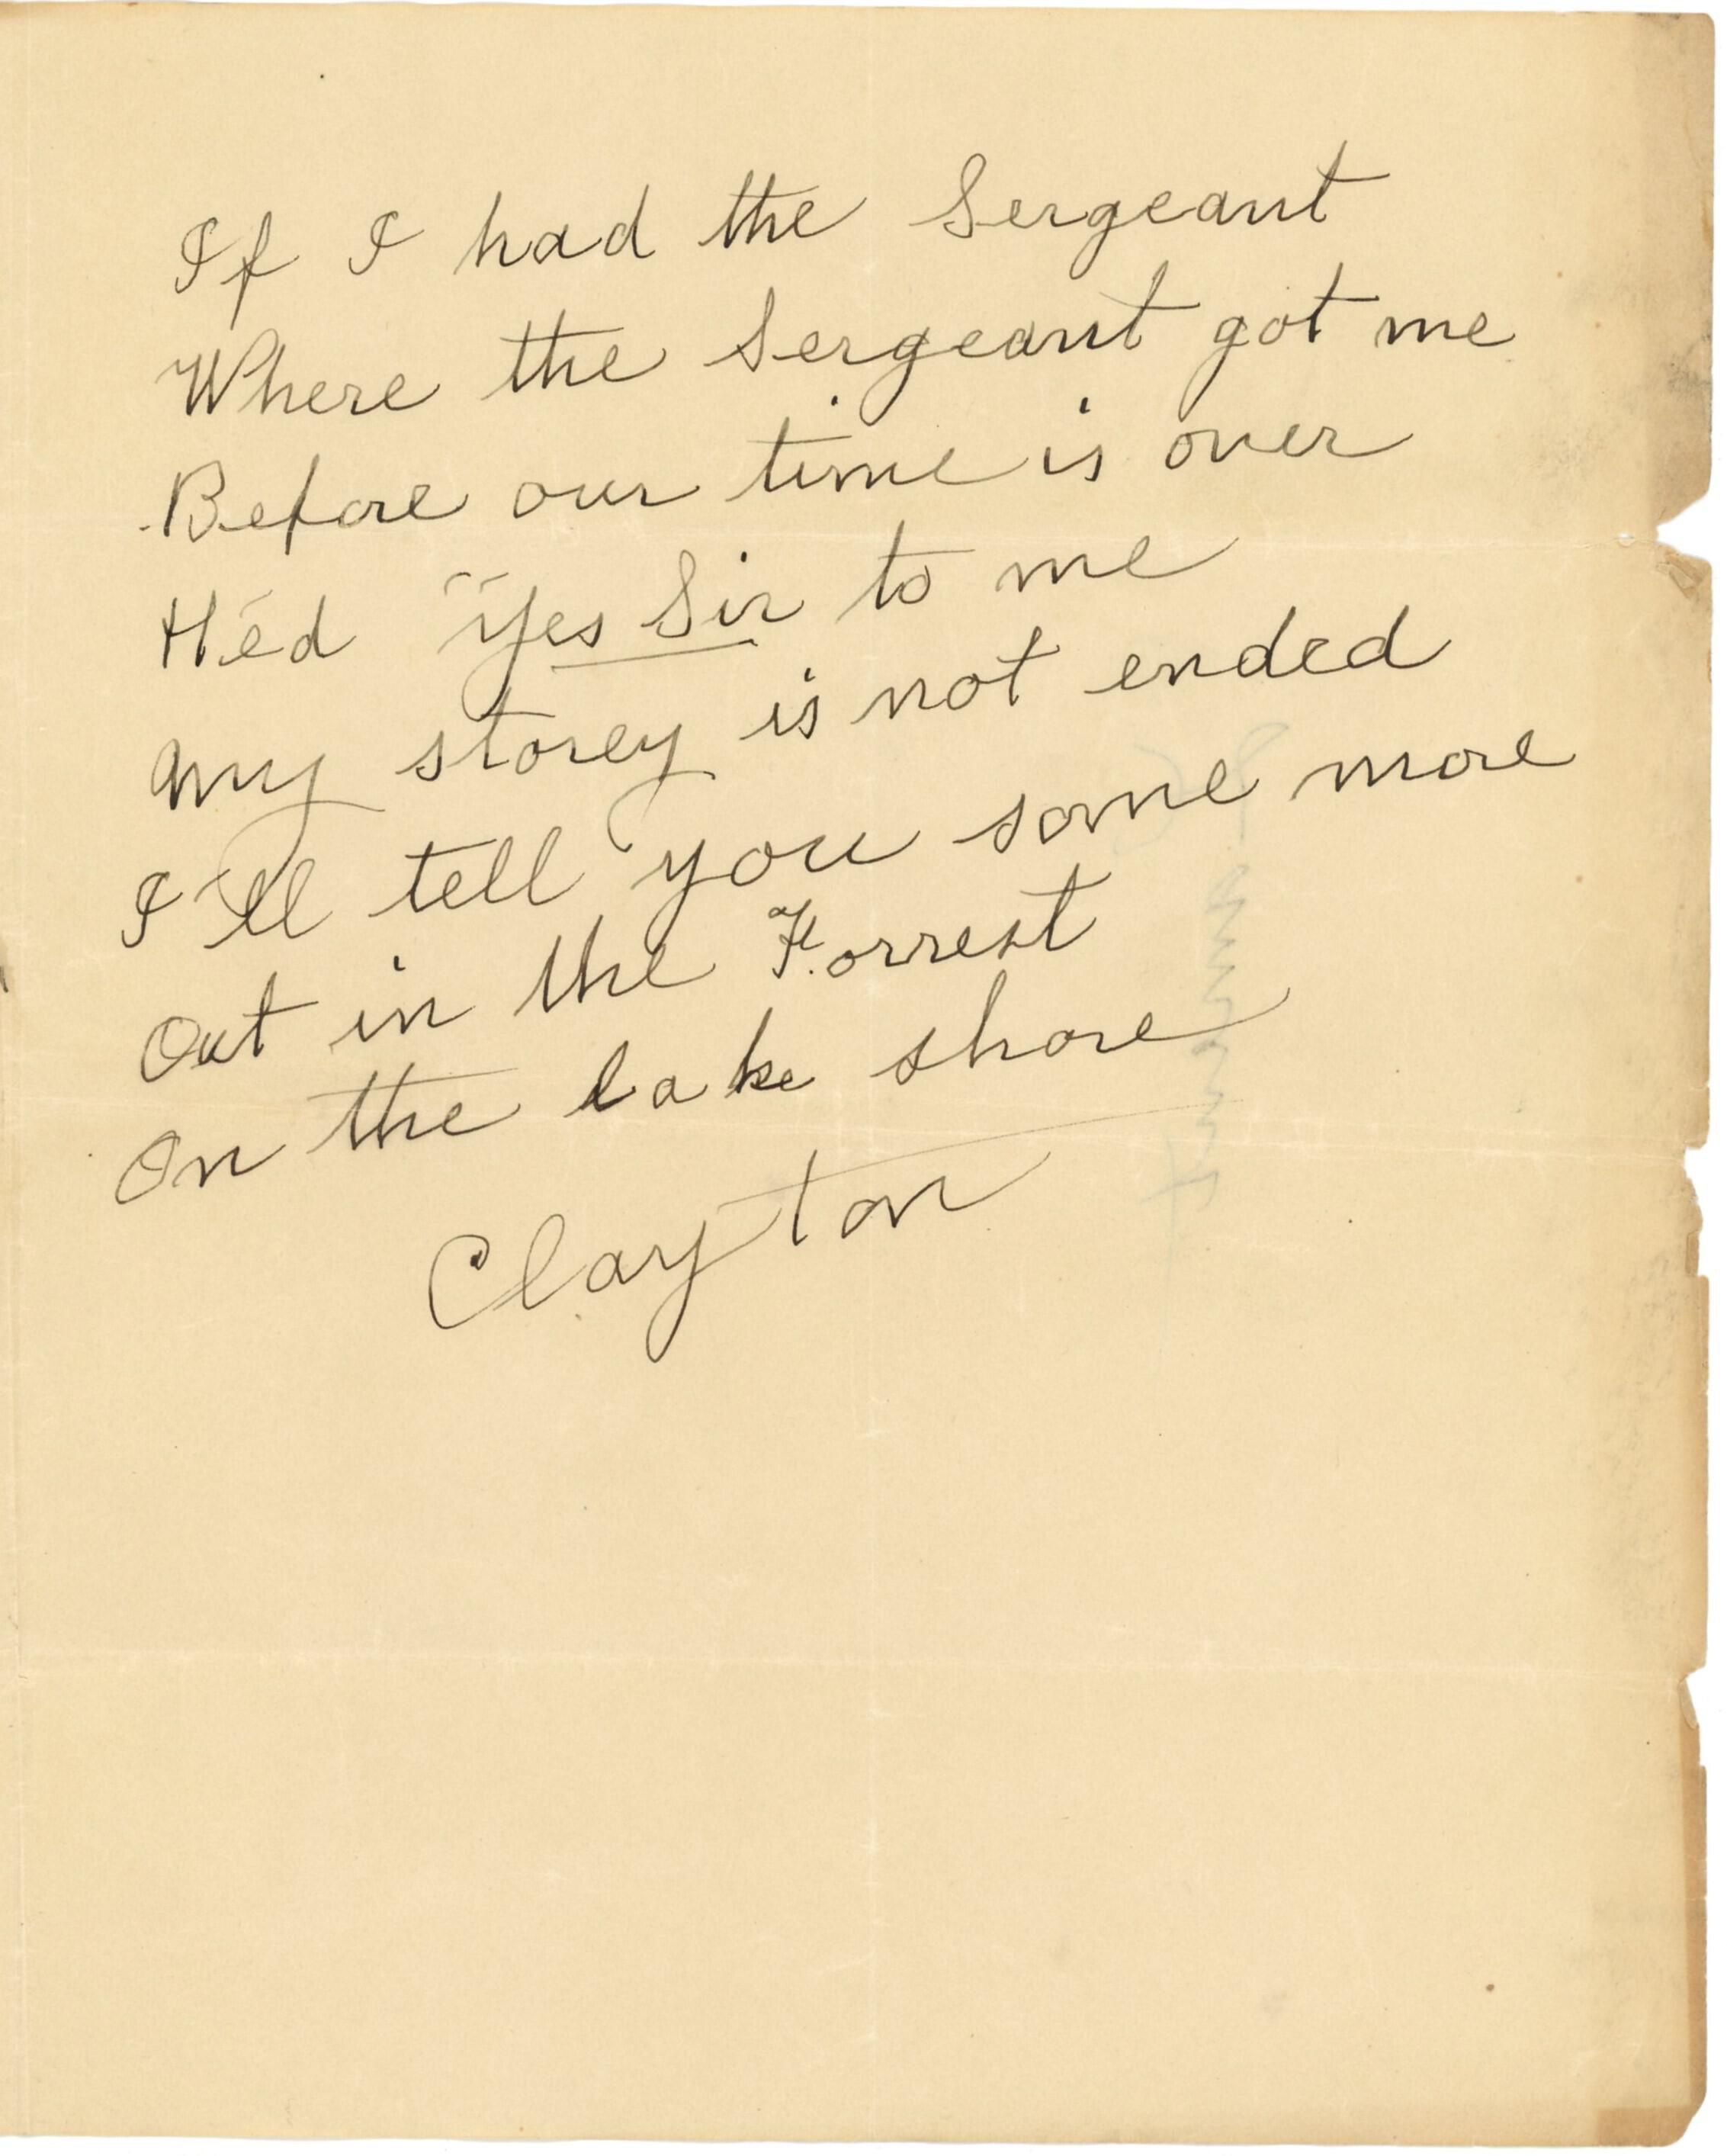 If I had the Sergeant
Where the Sergeant got me
Before our time is over
He'd "Yes Sir to me
My storey is not ended
I'll tell you some more
Out in the Forrest
On the lake shore
Clayton